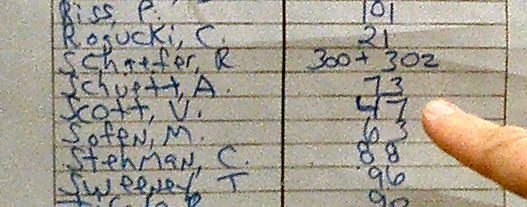 Riss, P. 101
Rogucki, C. 21
Schaefer, R 300+ 302
Schuett, A. 73
Scott, V. 47
Sofen, M. 63
Stehman, C. 88
Sweeney, T 96
90